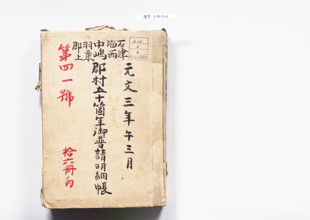 元文三年午三月
石津
海西
中嶋
羽栗
郡上
郡村五十箇年御普請明細帳
第四一號
拾六冊内